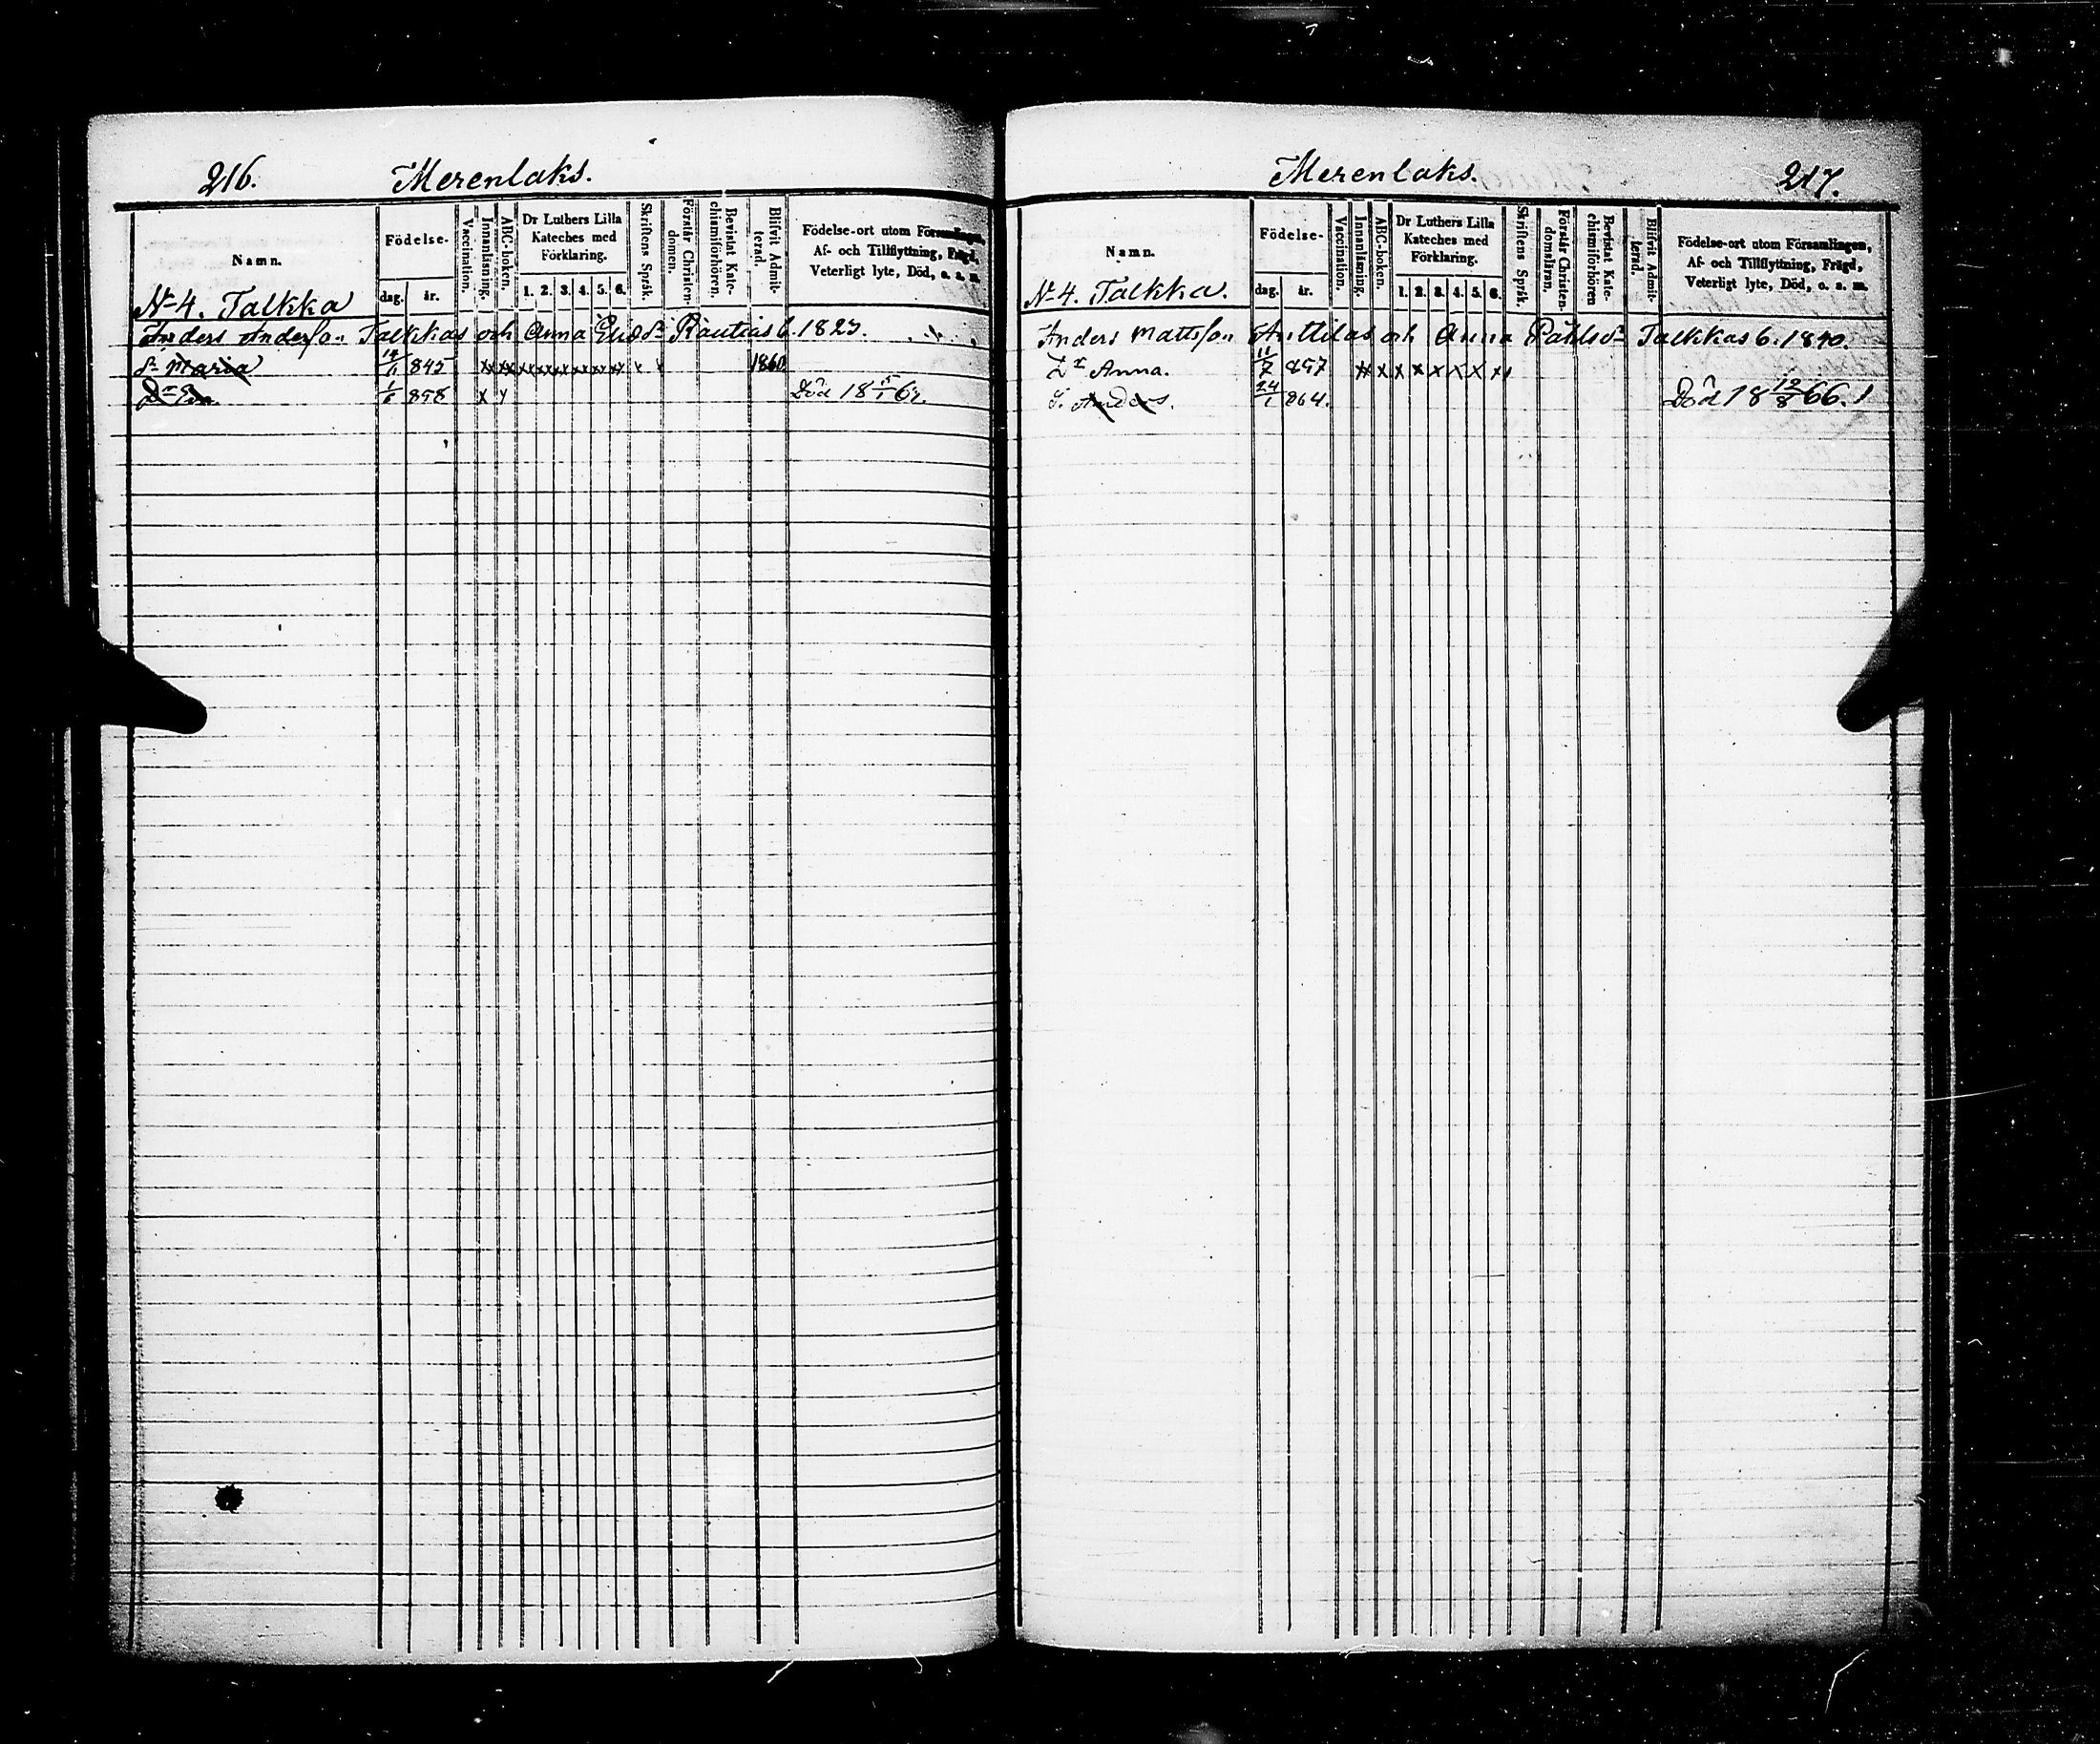 216. Merenlaks.
Namn. Födelse- dag. år. Vaccination. Innanläsning. ABC-boken. Dr Luthers Lilla Kateches med Förklaring. 1. 2. 3. 4. 5. 6. Skriftens Språk. Förstår Christendomen. Bevistat Katechismiförhören. Blifvit Admitterad. Födelse-ort utom Församlingen, Af- och Tillflyttning, Frägd, Veterligt lyte, Död, o. s. m.
No 4. Talkka
Anders Andersson Talkkas och Anna Eliæd:r Rautias b. 1823.
Dr Maria 845 xx xx xx xx xx xx xx xx x x 1860
Dr Eva 1/6 858 x x Död 18
Merenlaks. 217.
Namn. Födelse- dag. år. Vaccination. Innanläsning. ABC-boken. Dr Luthers Lilla Kateches med Förklaring. 1. 2. 3. 4. 5. 6. Skriftens Språk. Förstår Christendomsläran. Bevistat Katechismiförhören Blifvit Admitterad. Födelse-ort utom Församlingen, Af- och Tillflyttning, Frägd, Veterligt lyte, Död, o. s. m.
No 4. Talkka.
Anders Mattsson Anttilas och Anna Påhlsdr Talkkas b. 1840.
Dr Anna. 11/7 857 xx x x x x x x xx
S. Anders. 24/1 864. Död 18 12/8 66.